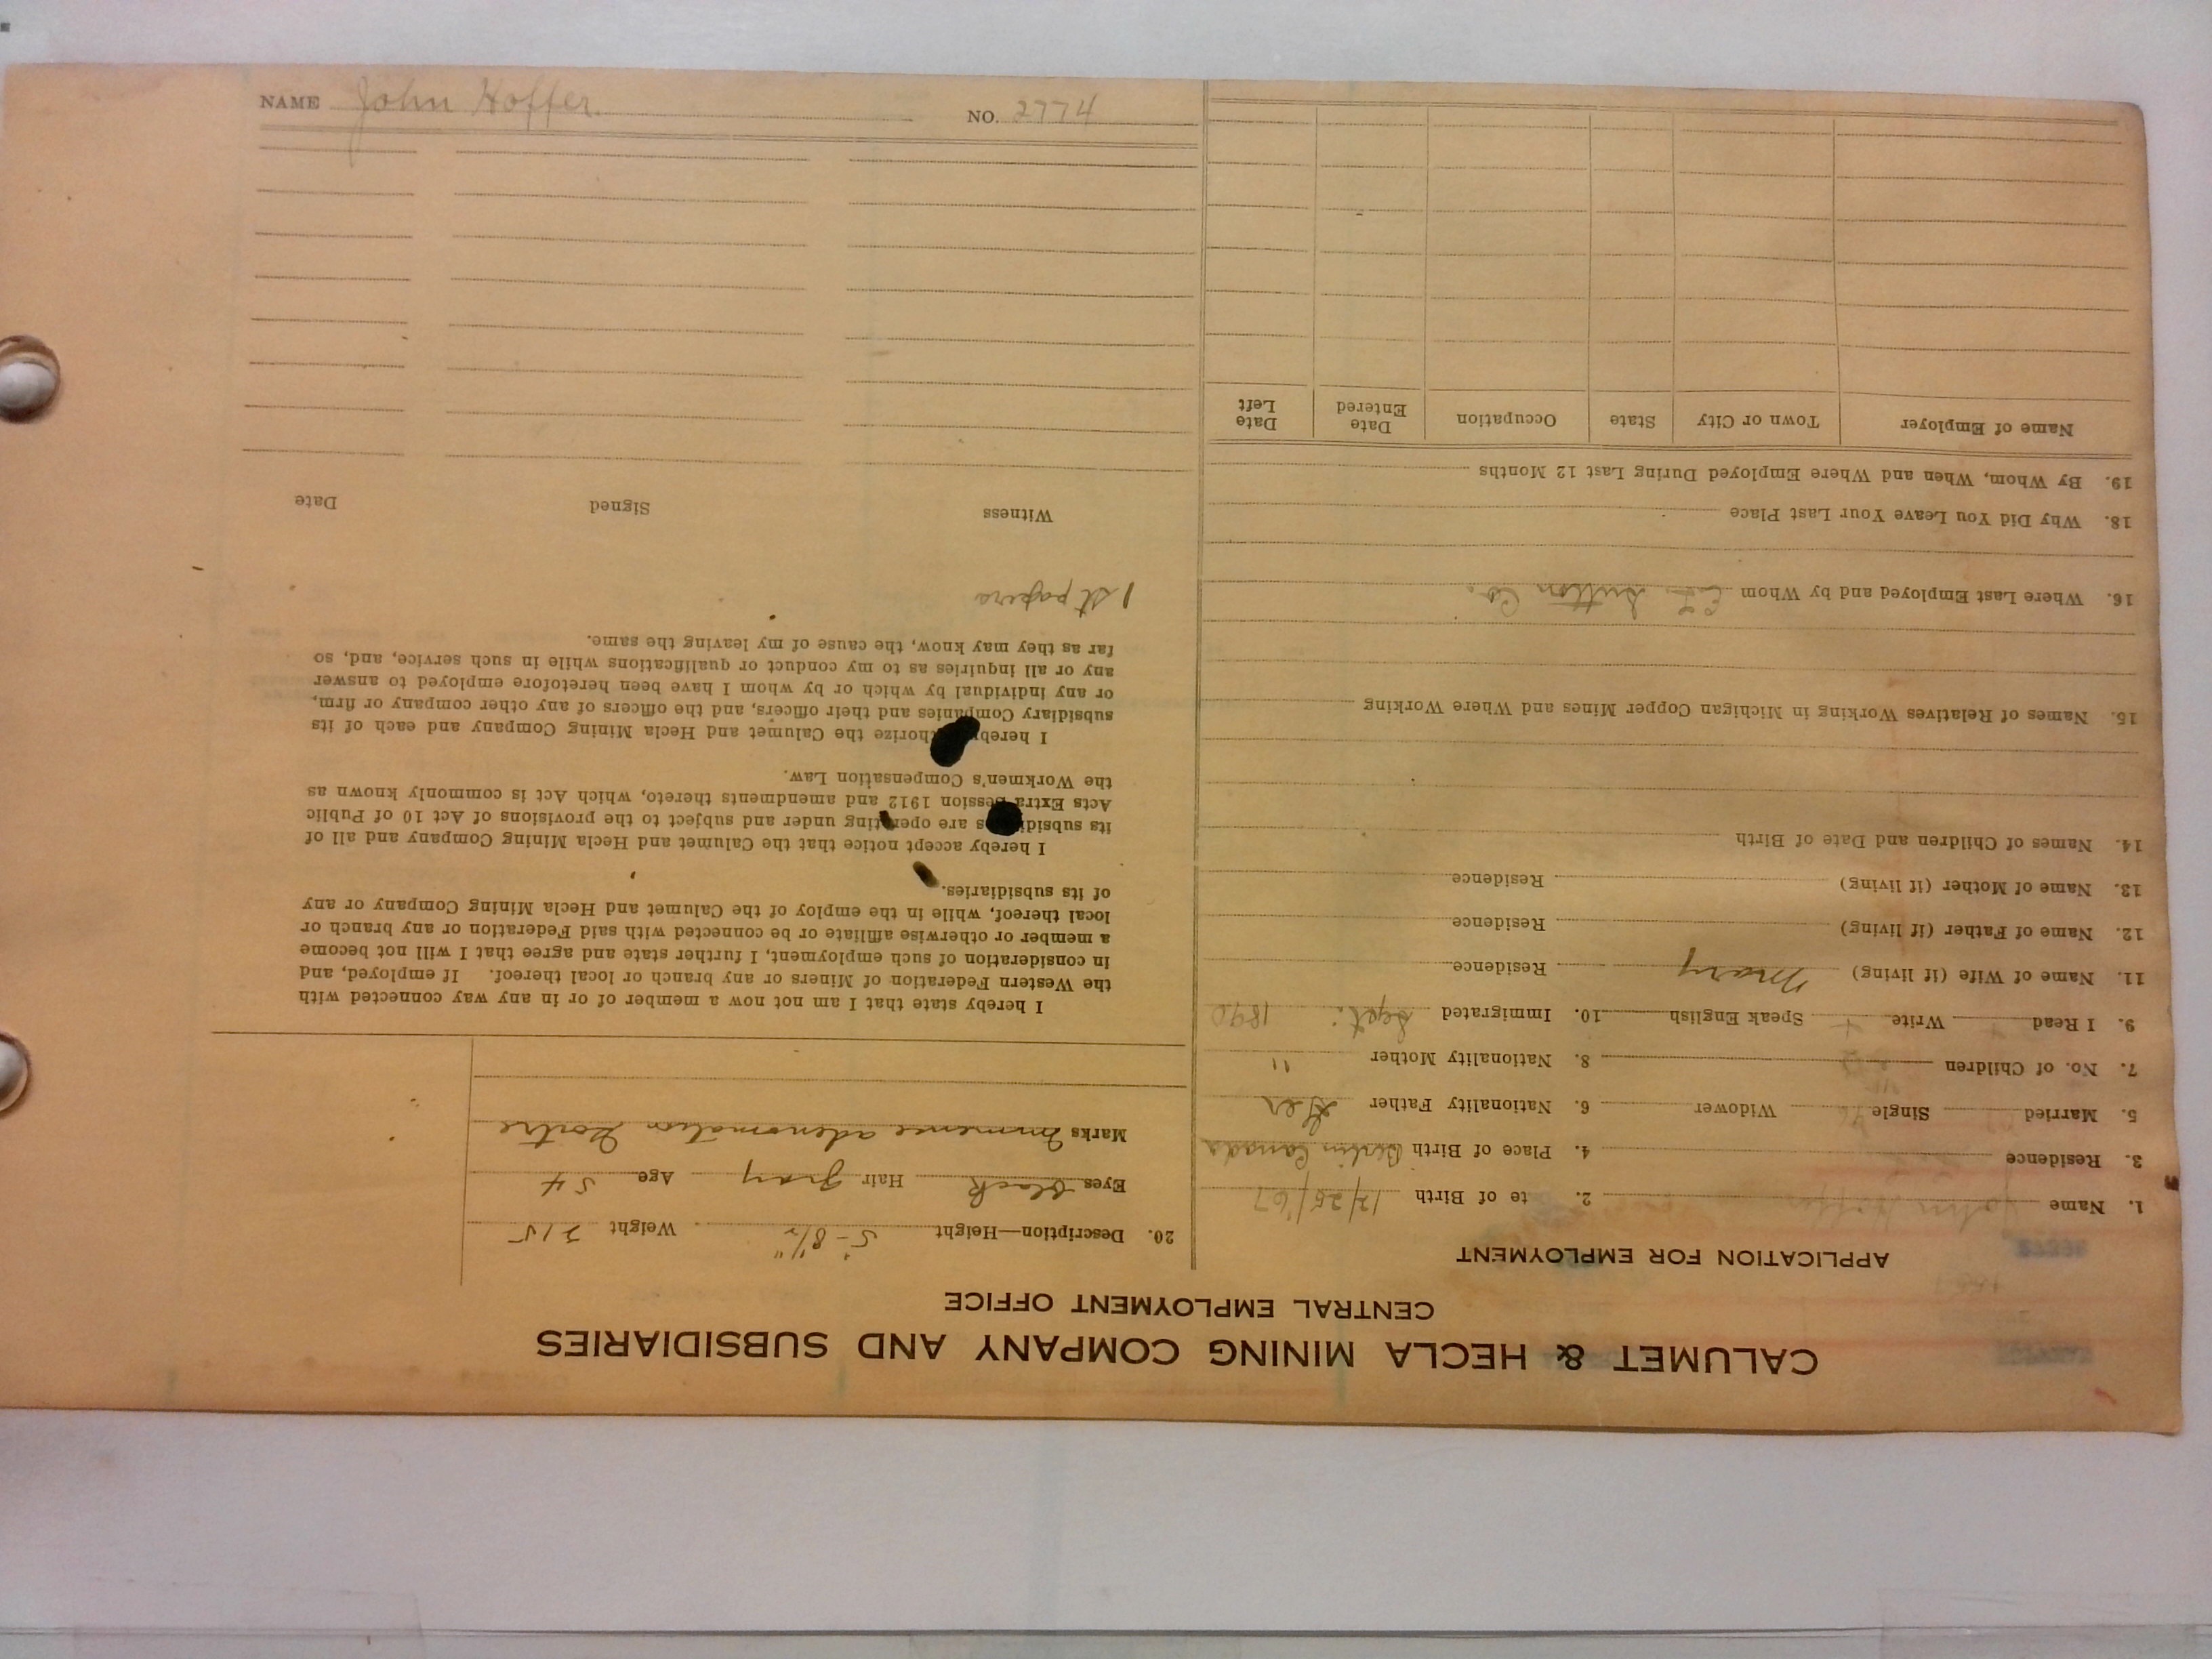 NAME John Hoffer NO. 2774
CALUMET & HECLA MINING COMPANY AND SUBSIDIARIES
CENTRAL EMPLOYMENT OFFICE
APPLICATION FOR EMPLOYMENT
1. Name John Hoffer 2. te of Birth 12/25/67
3. Residence 4. Place of Birth Berlin Canada
5. Married Single Widower 6. Nationality Father Ger
7. No. of Children 8. Nationality Mother "
9. I Read Write + Speak English 10. Immigrated Sept. 1890
11. Name of Wife (if living) Mary Residence
12. Name of Father (if living) Residence
13. Name of Mother (if living) Residence
14. Names of Children and Date of Birth
15. Names of Relatives Working in Michigan Copper Mines and Where Working
16. Where Last Employed and by Whom Sutton Co.
18. Why Did You Leave Your Last Place
19. By Whom, When and Where Employed During Last 12 Months
Name of Employer Town or City State Occupation Date Entered Date Left
20. Description—Height 5'-8½" Weight 215
Eyes Black Hair Gray Age 54
Marks Immense adenomatos Goitre
I hereby state that I am not now a member of or in any way connected with
the Western Federation of Miners or any branch or local thereof. If employed, and
in consideration of such employment, I further state and agree that I will not become
a member or otherwise affiliate or be connected with said Federation or any branch or
local thereof, while in the employ of the Calumet and Hecla Mining Company or any
of its subsidiaries.
I hereby accept notice that the Calumet and Hecla Mining Company and all of
its subsidi s are operating under and subject to the provisions of Act 10 of Public
Acts Extra Session 1912 and amendments thereto, which Act is commonly known as
the Workmen's Compensation Law.
I hereby thorize the Calumet and Hecla Mining Company and each of its
subsidiary Companies and their officers, and the officers of any other company or firm,
or any individual by which or by whom I have been heretofore employed to answer
any or all inquiries as to my conduct or qualifications while in such service, and, so
far as they may know, the cause of my leaving the same.
1st papers
Witness Signed Date